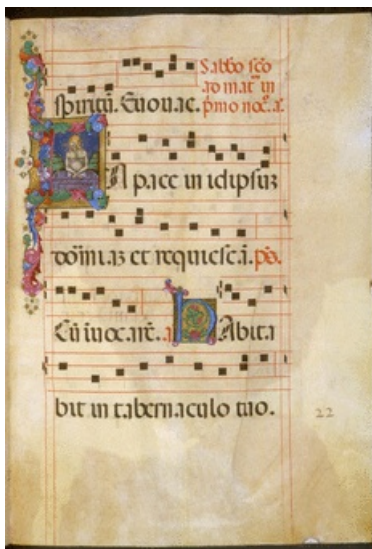 Sabbo sc̃o
ad mat̃ in
spiritũ. Euouae. p̃mo noc̃. a.
IN pace in idipsuz
dormiaz et requiescã. ps̃.
Cũ ĩuocarẽ. a. HAbita
bit in tabernaculo tuo.
22